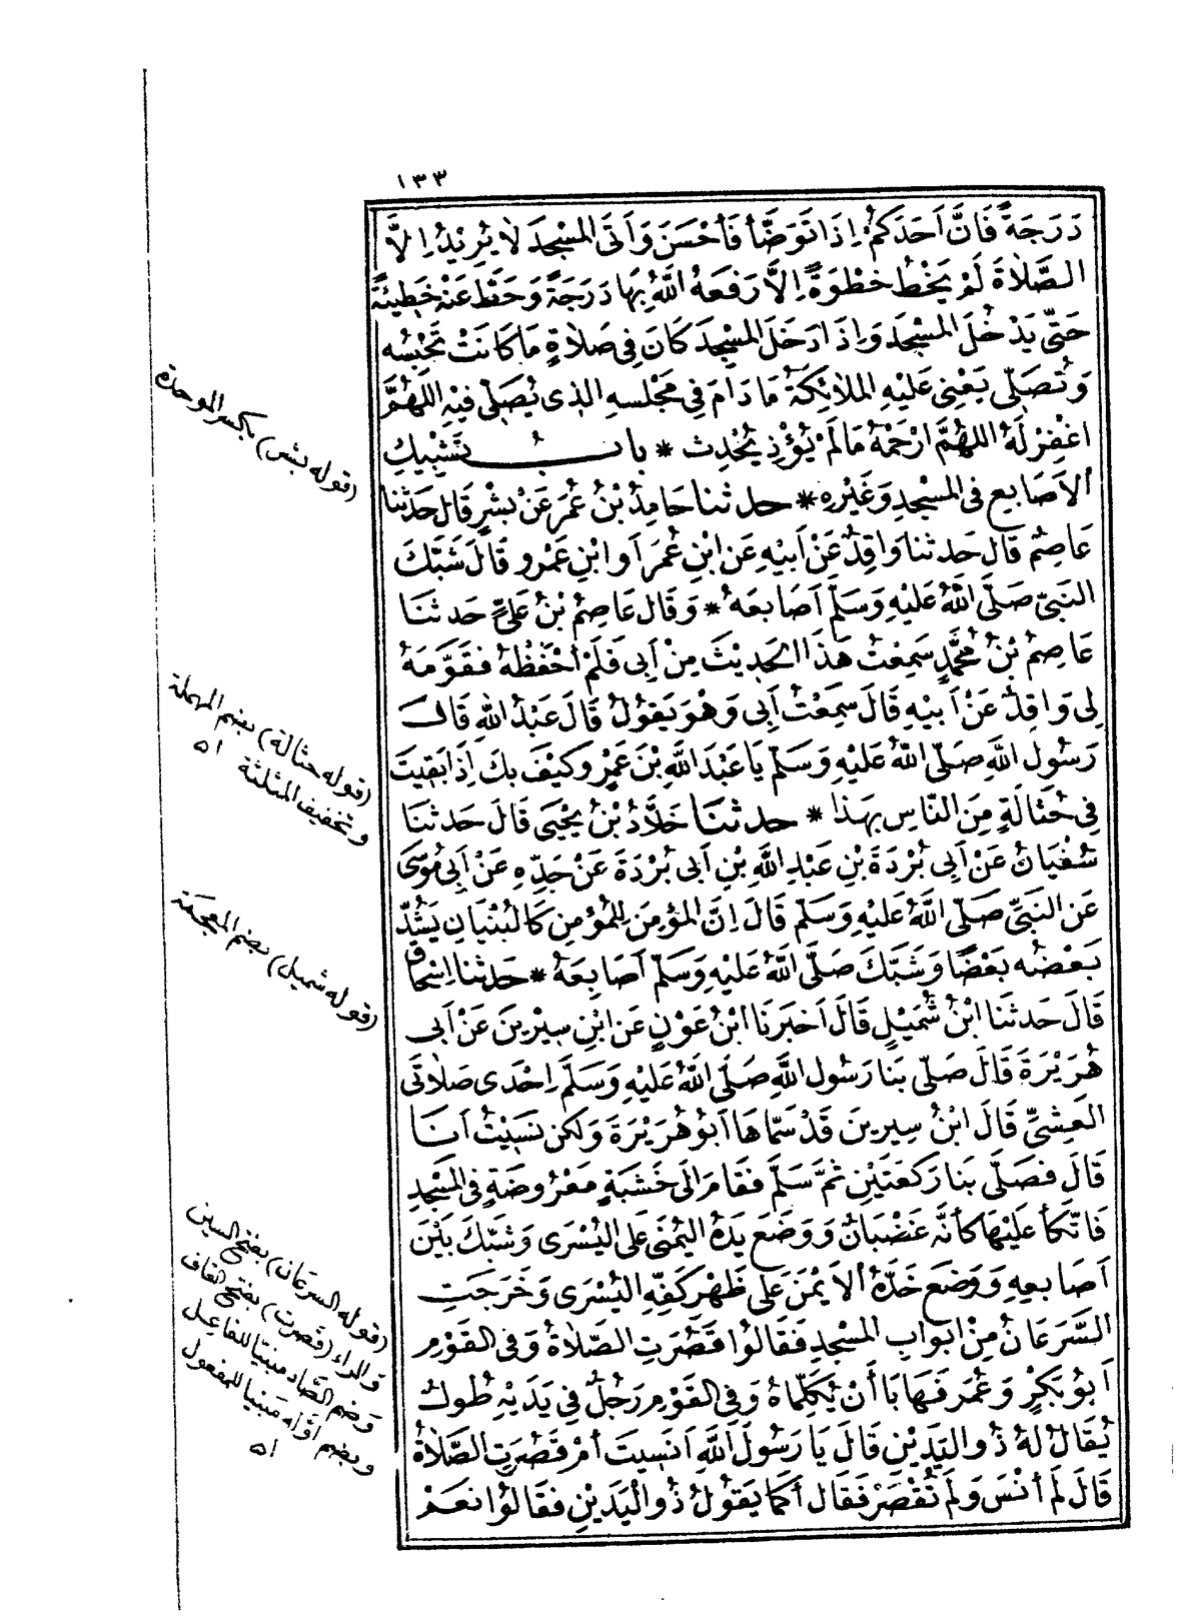 ١٣٣
دَرَجَةً فَاِنَّ اَحَدَكُمْ اِذَا تَوَضَّأَ فَأَحْسَنَ وَاَتَى المَسْجِدَ لاَ يُرِيْدُ اِلاَّ
الصَّلاَةَ لَمْ يَخْطُ خُطْوَةً اِلاَّ رَفَعَهُ اللَّهُ بِهَا دَرَجَةً وَحَطَّ عَنْهُ خَطِيئَةً
حَتَّى يَدْخُلَ المَسْجِدَ وَاِذَا دَخَلَ المَسْجِدَ كَانَ فِى صَلاَةٍ مَا كَانَتْ تَحْبِسُه
وَتُصَلِّى يَعْنِى عَلَيْهِ المَلاَئِكَةُ مَا دَامَ فِى مَجْلِسِهِ الذِى يُصَلِّى فِيْهِ اللهُمَّ
اغْفِرْ لَهُ اللهُمَّ ارْحَمْهُ مَا لَمْ يُؤْذِ يُحْدِث * بابُ تَشْبِيْكِ
اْلاَصَابِعِ فى المَسْجِدِ وَغَيْرِهِ * حدثنا حَامِدُ بْنُ عُمَرَ عَنْ بِشْرٍ قَال حَدثنَا
عَاصِمٌ قَال حَدثنَا وَاقِدٌ عَنْ اَبِيْهِ عَن ابْنِ عُمَرَ اَو ابْنِ عَمْرو قَالَ شَبَّكَ
النَبىّ صَلَّى اللَّهُ عَلَيْهِ وَسَلَّمَ اَصَابعَهُ * وَقَال عَاصِمُ بْنُ عَلىٍّ حَدثنَا
عَاصِمُ بْنُ مُحَمَّدٍ سَمِعْتُ هَذَا الحَدِيْثَ مِنْ اَبِى فَلَمْ اَحْفَظْهُ فَقَوَّمَهُ
لِى وَاقِدٌ عَنْ اَبِيْهِ قَالَ سَمِعْتُ اَبِى وَهْوَ يَقولُ قَالَ عَبْدُ اللهِ قَال
رَسُول اللهِ صَلَّى اللهُ عَلَيْهِ وَسَلَّم يَا عَبْدَ اللَّهِ بْنَ عَمْرٍو كَيْفَ بِكَ اِذَا بَقِيتَ
فِى حُثَالَةٍ مِنَ النَّاسِ بِهَذا * حدثنَا خَلاَّدُ بْنُ يَحْيَى قَالَ حَدثنَا
سُفْيَانُ عَنْ اَبِى بُرْدَةَ بْنِ عَبْدِ اللَّهِ بْنِ اَبى بُرْدَةَ عَنْ جَدِّهِ عَنْ اَبِى مُوسَى
عَنِ النَبىِّ صَلَّى اللَّهُ عَلَيْهِ وَسَلم قَالَ اِنَّ المُؤمِنَ لِلمُؤْمِنِ كَالْبُنْيَانِ يَشُدّ
بَعْضُه بَعْضًا وَشَبَّكَ صَلَّى اللَّهُ عَلَيْهِ وَسَلَّم اَصَابِعَهُ * حَدثنا اِسْحَاق
قَالَ حَدثنَا ابْنُ شُمَيْلٍ قَالَ اَخبَرنَا ابْنُ عَوْنٍ عَن ابْنِ سِيْرِينَ عَنْ اَبى
هُرَيْرَةَ قَالَ صَلَّى بنَا رَسُول اللَّهِ صَلَّى اللَّهُ عَلَيْهِ وَسَلَّم اِحْدَى صَلاَتَىِ
العَشِىِّ قَالَ ابْنُ سِيرِينَ قَدْ سَمَّاهَا اَبُو هُرَيْرَةَ وَلكِن نَسَيْتُ اَنَا
قَالَ فصَلَّى بنَا رَكعَتَيْنِ ثمَّ سَلَّم فقَامَ اِلَى خَشَبَةٍ مَعْرُوضَةٍ فى المَسْجِدِ
فَاتَّكَأَ عَلَيْهَا كَأنَّه غَضْبَانُ وَوَضَعَ يَدَهُ اليُمْنَى عَلَى اليُسْرَى وَشَبَّكَ بَيْنَ
اَصَابِعِهِ وَوَضَعَ خَدَّهُ اْلاَيْمَنَ عَلَى ظَهْرِ كَفِّهِ اليُسْرَى وَخَرَجَتِ
السَّرَعَانُ مِنْ اَبوَابِ المَسْجِدِ فَقَالُوا قَصُرَتِ الصَّلاَةُ وَفى القَوْمِ
اَبُو بَكْرٍ وَعُمَر فَهَابَا أَنْ يُكَلِّمَاهُ وَفى القَوْمِ رَجُلٌ فِى يَدَيْهِ طُولٌ
يُقَالُ لَهُ ذُو اليَدَيْن قَالَ يَا رَسُولَ اللَّهِ اَنَسِيتَ اَمْ قَصُرَتِ الصَّلاَةُ
قَالَ لَمْ أَنْسَ وَلَمْ تُقْصَرْ فَقَال أَكَمَا يَقولُ ذُو اليَدَيْنِ فَقَالُوا نعَمْ
(قوله بشر) بكسر الموحدة
(قوله حثالة) بضم المهملة
وتخفيف المثلثة اه
(قوله شميل) بضم المعجمة
(قوله السرعان) بفتح السين
والراء (قصرت) بفتح القاف
وَضم الصَّاد مبنيّا للفاعل
وبضم اوّله مَبنيا للمفعول
اه